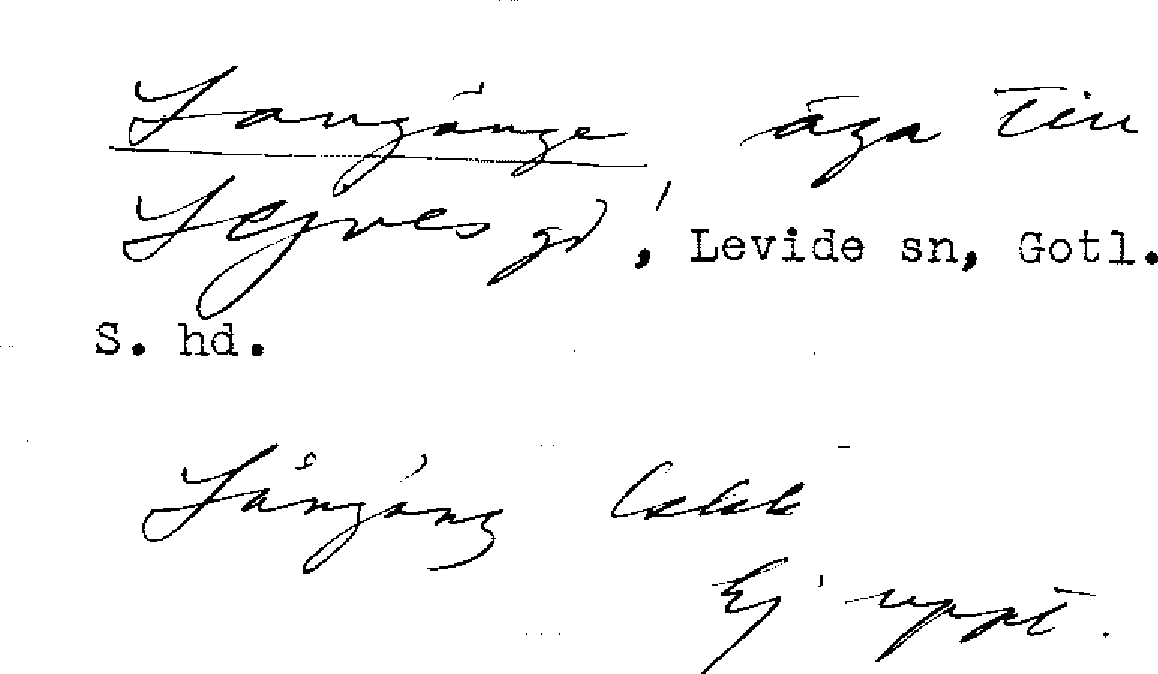 Langánge äga till
Lejves gd, Levide sn, Gotl.
S. hd.
Långáng
Ej uppt.